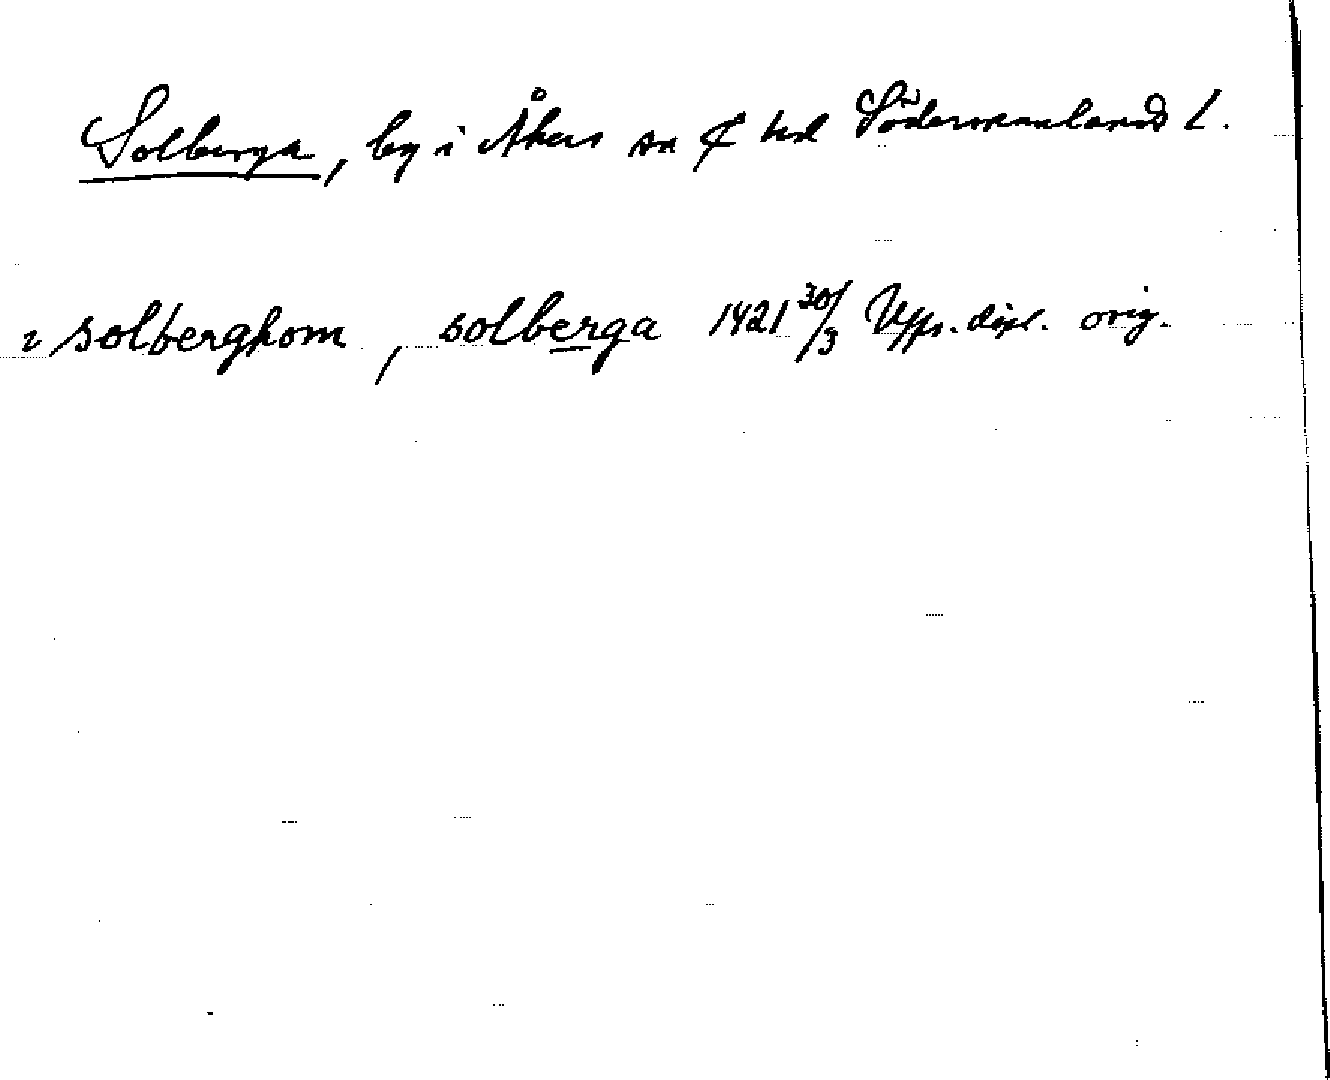 Solberga, by i Åkers sn ₵ hd Södermanlands l.
i solberghom, solberga 1421 30/3 Upps. dipl. orig.